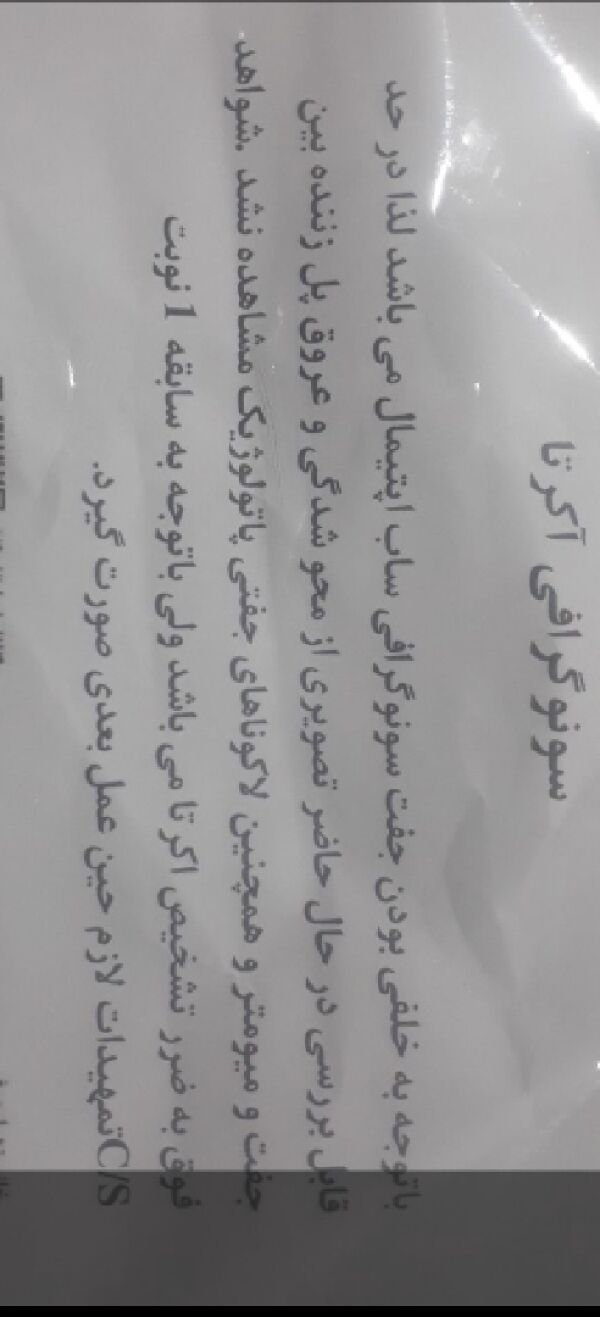 سونوگرافی آکرتا
باتوجه به خلفی بودن جفت سونوگرافی ساب اپتیمال می باشد لذا در حد
قابل بررسی در حال حاضر تصویری از محو شدگی و عروق پل زننده بین
جفت و میومتر و همچنین لاکوناهای جفتی پاتولوژیک مشاهده نشد .شواهد
فوق به ضرر تشخیص اکرتا می باشد ولی باتوجه به سابقه 1 نوبت
C/Sتمهیدات لازم حین عمل بعدی صورت گیرد.